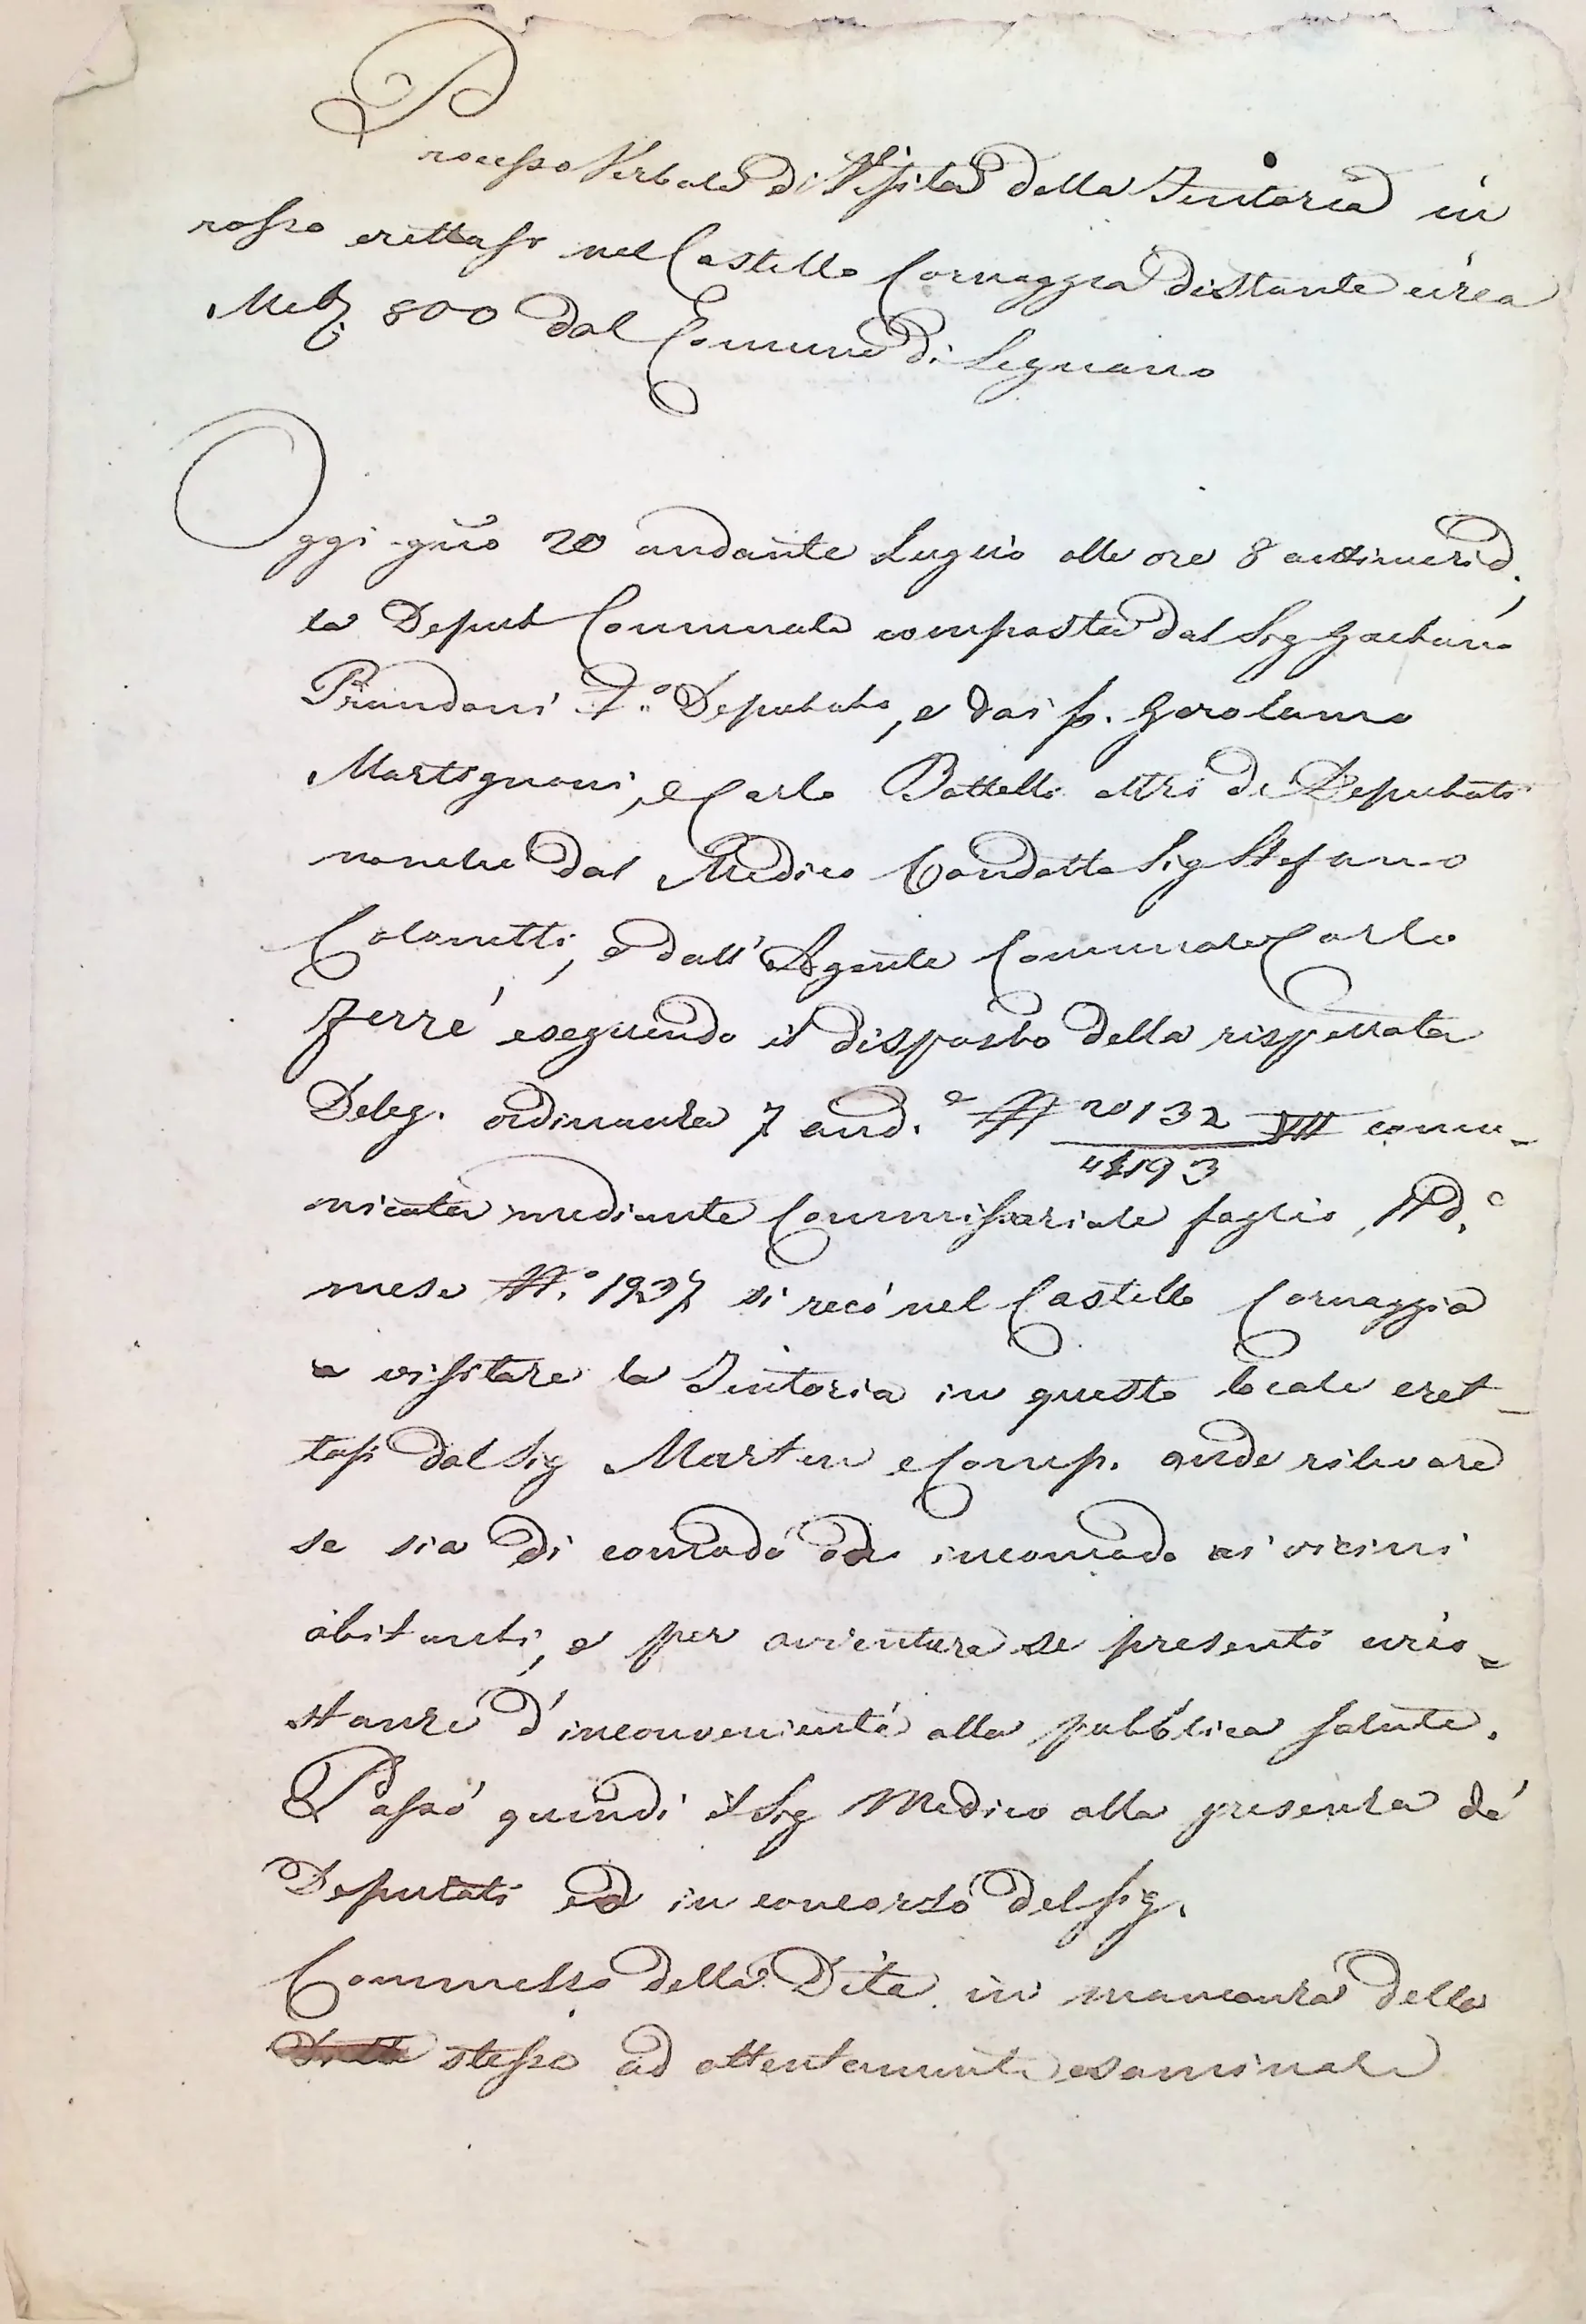 Processo Verbale di Vissita della Tintoria in
rosso erettasi nel Castello Cornaggia distante circa
Met.i 800 dal Comune di Legnano
Oggi gno 20 andante Luglio alle ore 8 antimerid.
la Deput Comunale composta dal Sig Gaetano
Prandoni 1.o Deputato, e dai ss. Gerolamo
Martignoni, e Carlo Battelli altri di Deputati
nonche dal Medico Condotto Sig Stefano
Colonetti, e dall' Agente Comunale Carlo
Ferré eseguendo il disposto della rispettata
Deleg. ordinanza 7 and.e N 20132 VII comu-
4193
nicata mediante Commissariale foglio d.o
mese N.o 1937 si recò nel Castello Cornaggia
a vissitare la Tintoria in questo locale eret-
tasi dal Sig Martin e Comp. onde rilevare
se sia di comodo od incomodo ai vicini
abitanti, e per avventura se presenti circo-
stanze d'inconvenienti alla pubblica salute.
Passò quindi il Sig Medico alla presenza de'
Deputati ed in concorso del Sig.
Commesso della Dita in mancanza dello
stesso ad attentamente esaminare